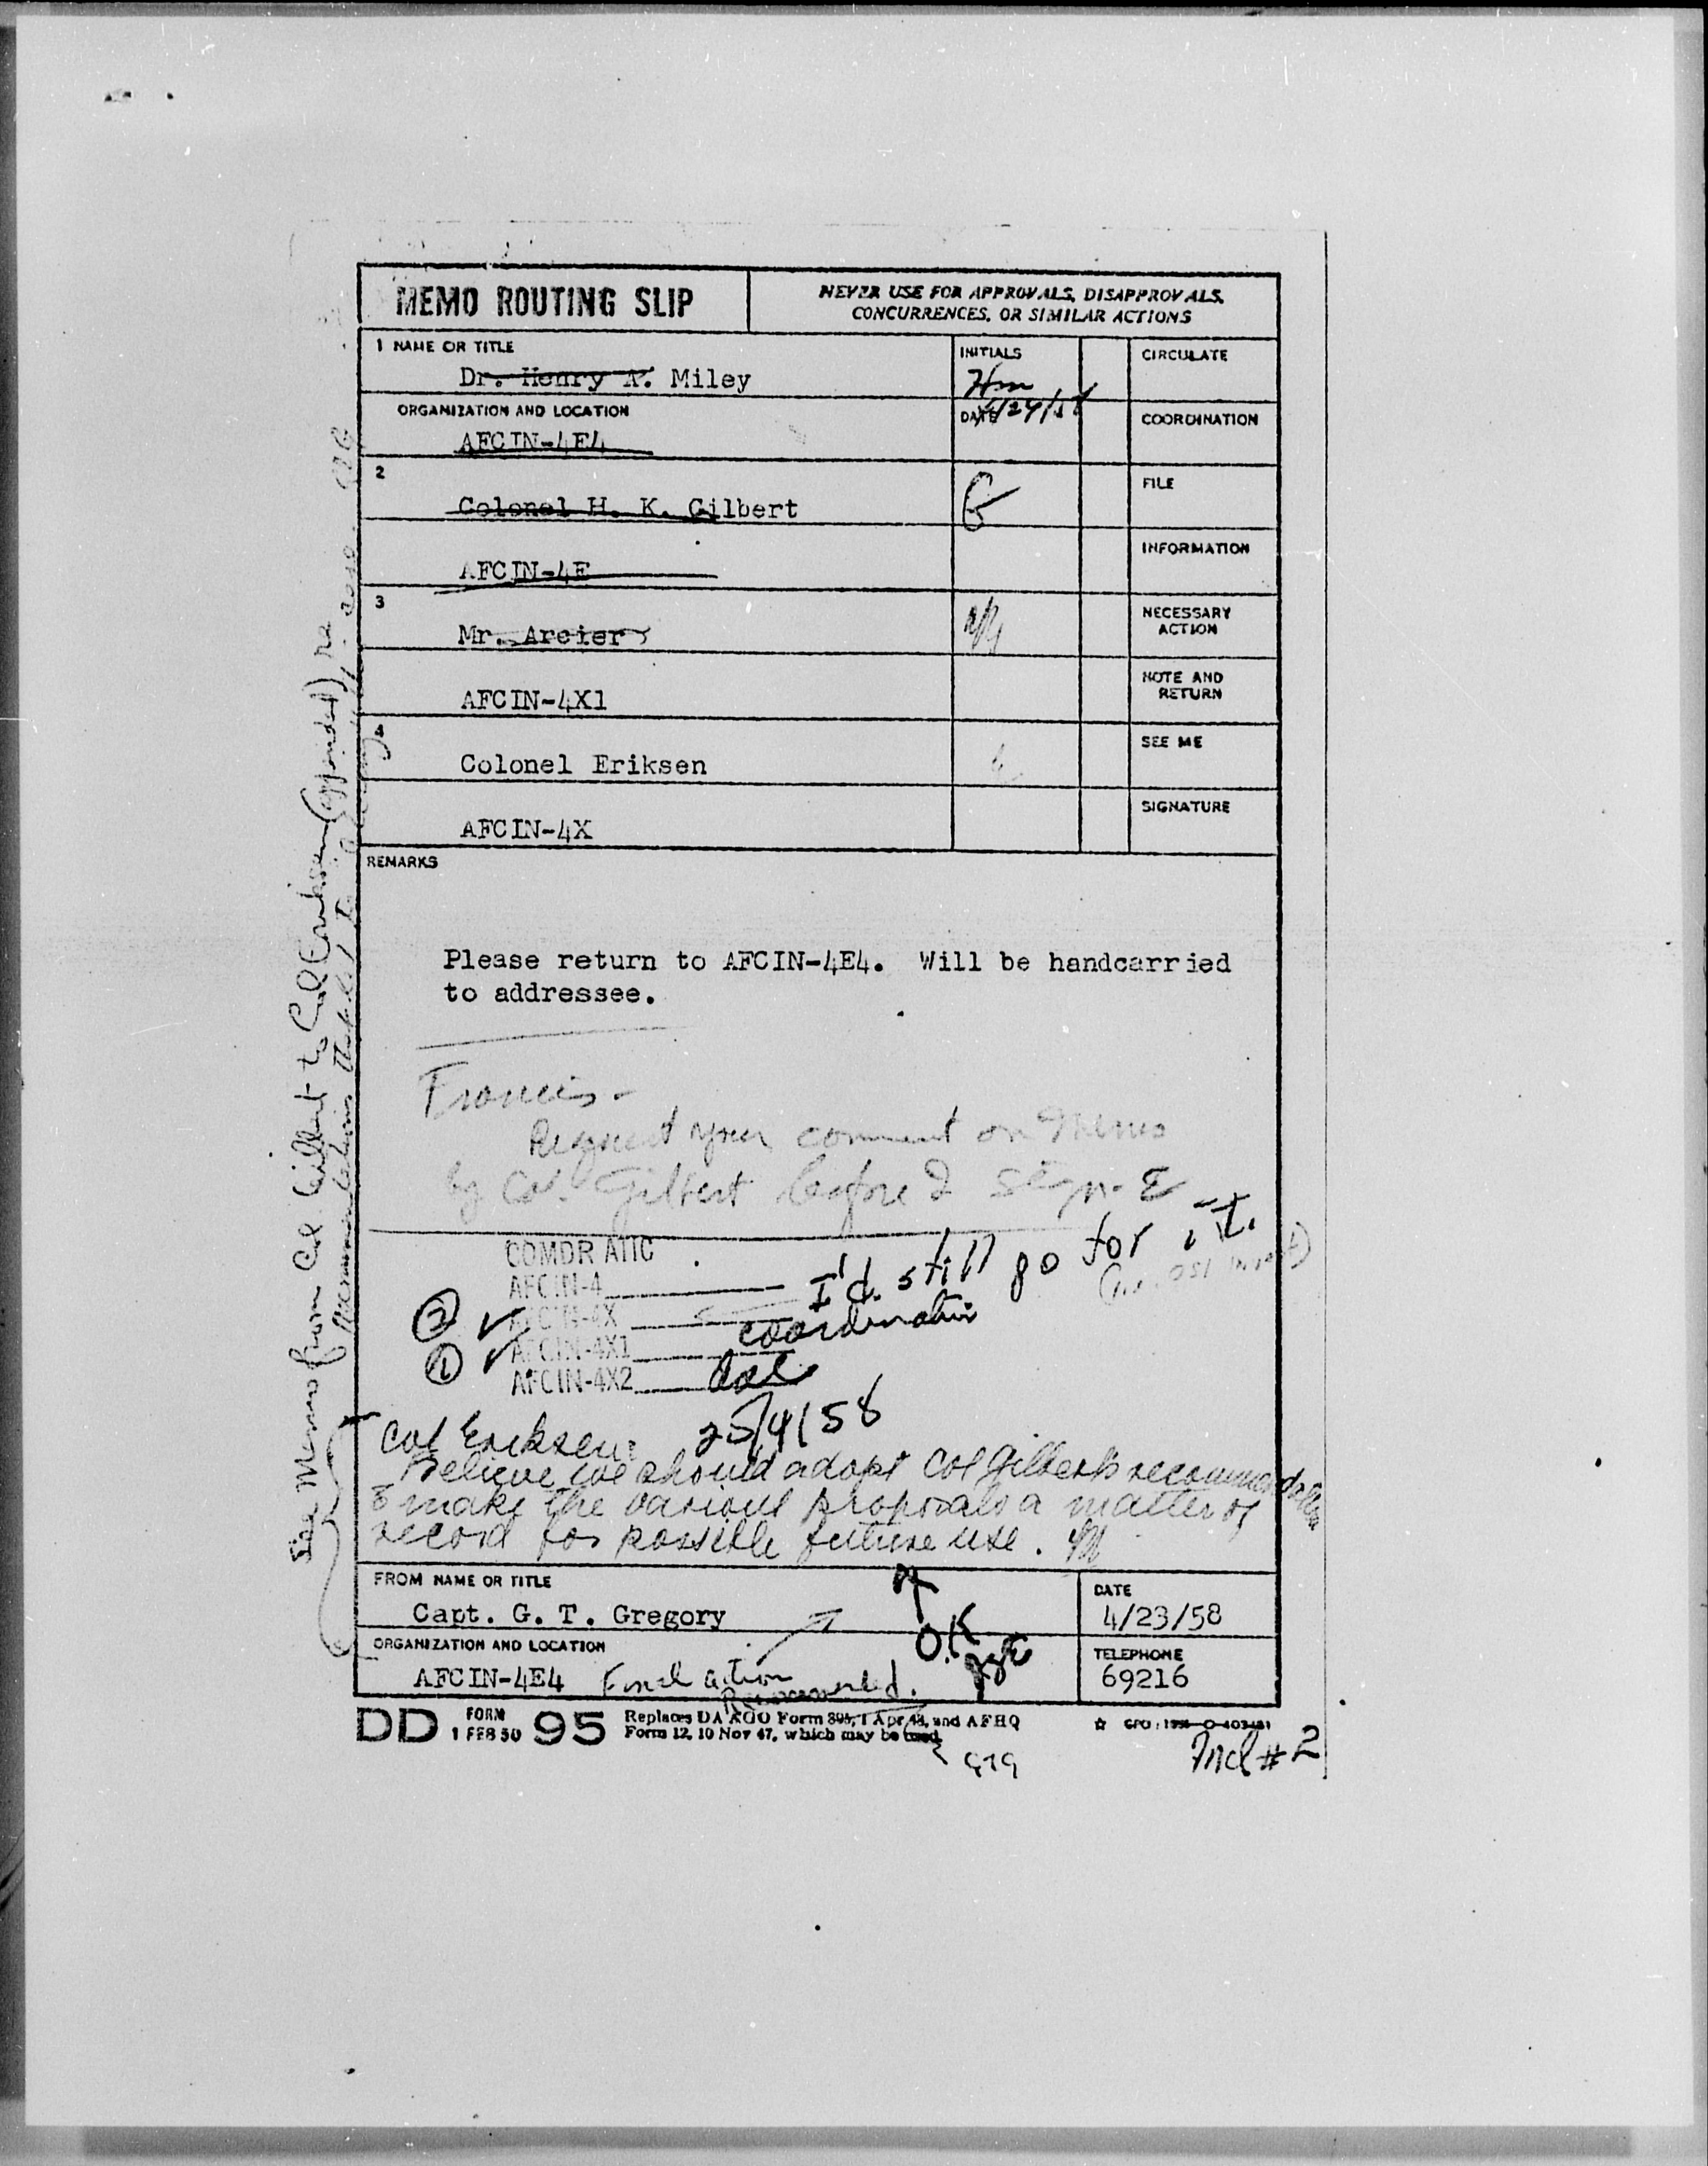 MEMO ROUTING SLIP
NEVER USE FOR APPROVALS, DISAPPROVALS,
CONCURRENCES, OR SIMILAR ACTIONS
1 NAME OR TITLE
Dr. Henry A. Miley
INITIALS
Hm
CIRCULATE
ORGANIZATION AND LOCATION
AFCIN-4E4
DATE
4/24/58
COORDINATION
2
Colonel H. K. Gilbert
G
FILE
AFCIN-4E
INFORMATION
3
Mr. Arcier
NECESSARY
ACTION
AFCIN-4X1
NOTE AND
RETURN
4
Colonel Eriksen
SEE ME
AFCIN-4X
SIGNATURE
REMARKS
Please return to AFCIN-4E4. Will be handcarried
to addressee.
Francis -
Request your comment on memo
by Col. Gilbert before I sign. E
COMDR ATIC
AFCIN-4
I'd still go for it.
(i.e. OSI invest)
② ✓ AFCIN-4X
coordination
① ✓ AFCIN-4X1
AFCIN-4X2
25/4/58
Col Eriksen:
Believe we should adopt Col Gilbert's recommendation
& make the various proposals a matter of
record for possible future use.
See Memo from Col. Gilbert to Col Eriksen (appended) re
FROM NAME OR TITLE
Capt. G. T. Gregory
DATE
4/23/58
O.K
ORGANIZATION AND LOCATION
AFCIN-4E4
Final action
Recommended.
TELEPHONE
69216
DD FORM 1 FEB 50 95
Replaces DA AGO Form 895, 1 Apr 48, and AFHQ
Form 12, 10 Nov 47, which may be used.
GTG
Incl #2